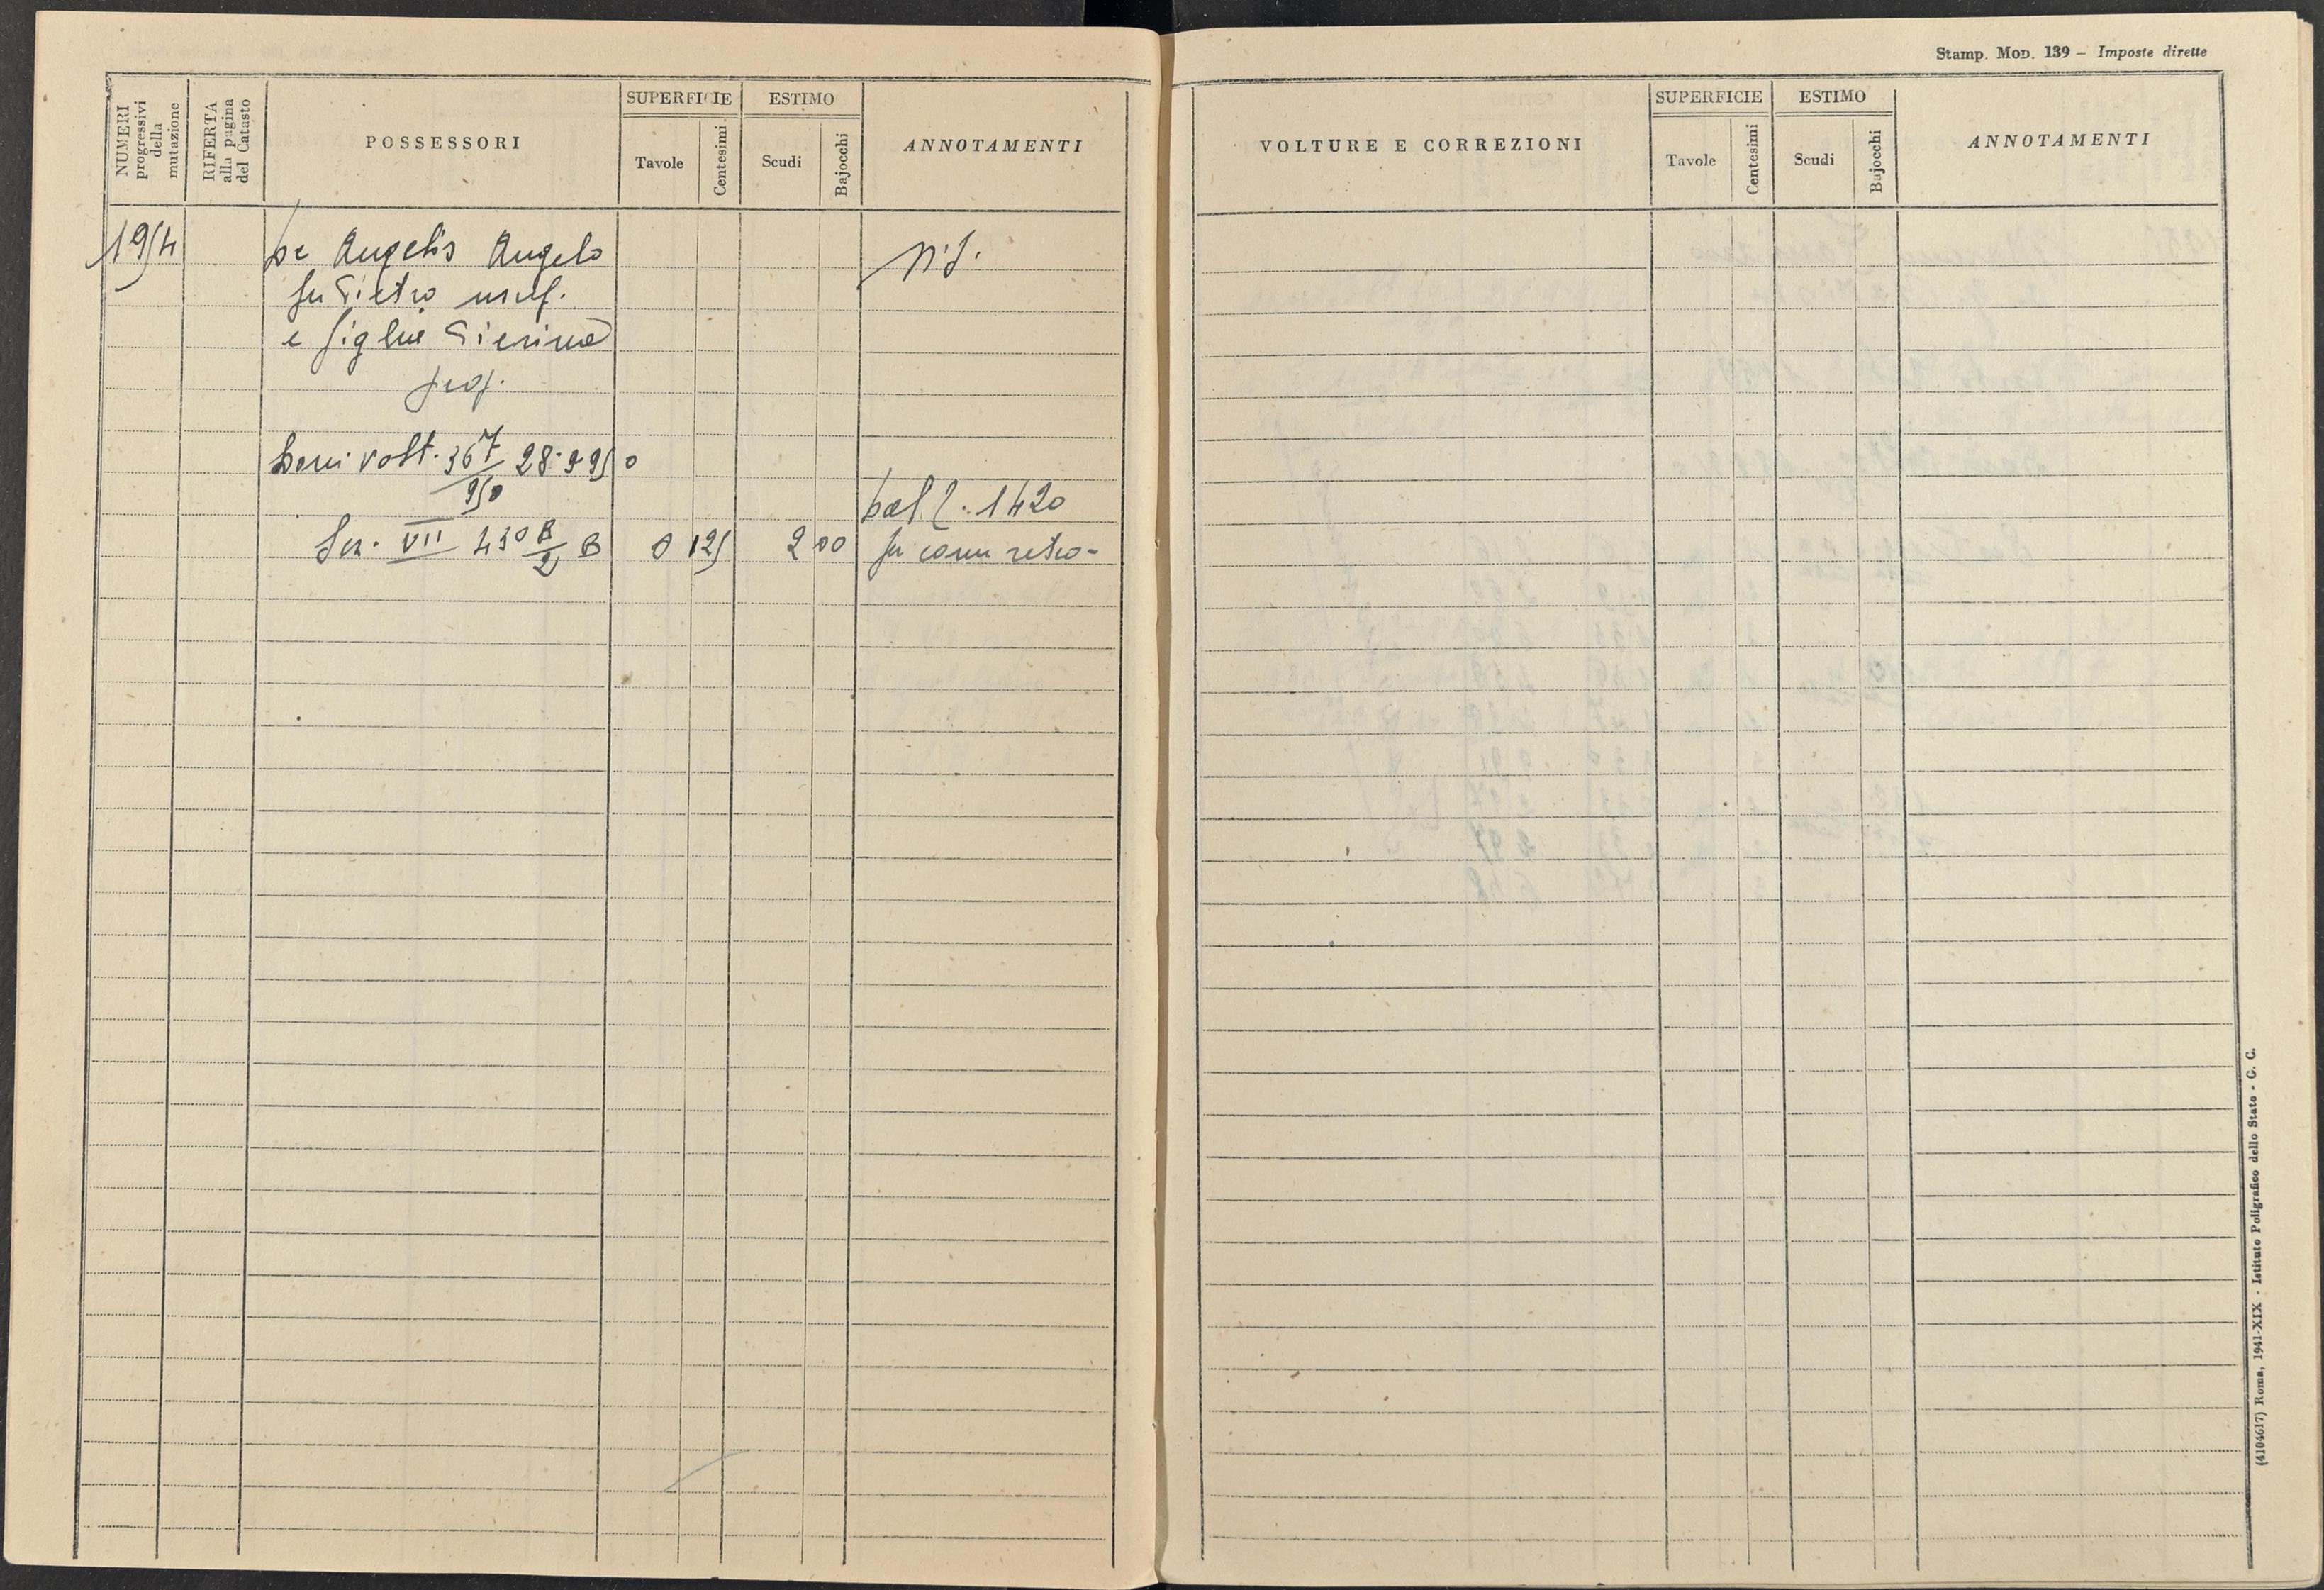 Stamp. Mod. 139 – Imposte dirette
NUMERI progressivi della mutazione
RIFERTA alla pagina del Catasto
POSSESSORI
SUPERFICIE
Tavole
Centesimi
ESTIMO
Scudi
Bajocchi
ANNOTAMENTI
VOLTURE E CORREZIONI
SUPERFICIE
Tavole
Centesimi
ESTIMO
Scudi
Bajocchi
ANNOTAMENTI
1954
De Angelis Angelo
fu Pietro usuf.
e figlia Pierina
prop.
Beni volt. 367/950 28-9-950
dal 1420
Sez. VII 430 B/2 B 0 125 2 00 fu coriu retro-
(4104617) Roma, 1941-XIX - Istituto Poligrafico dello Stato - G. C.